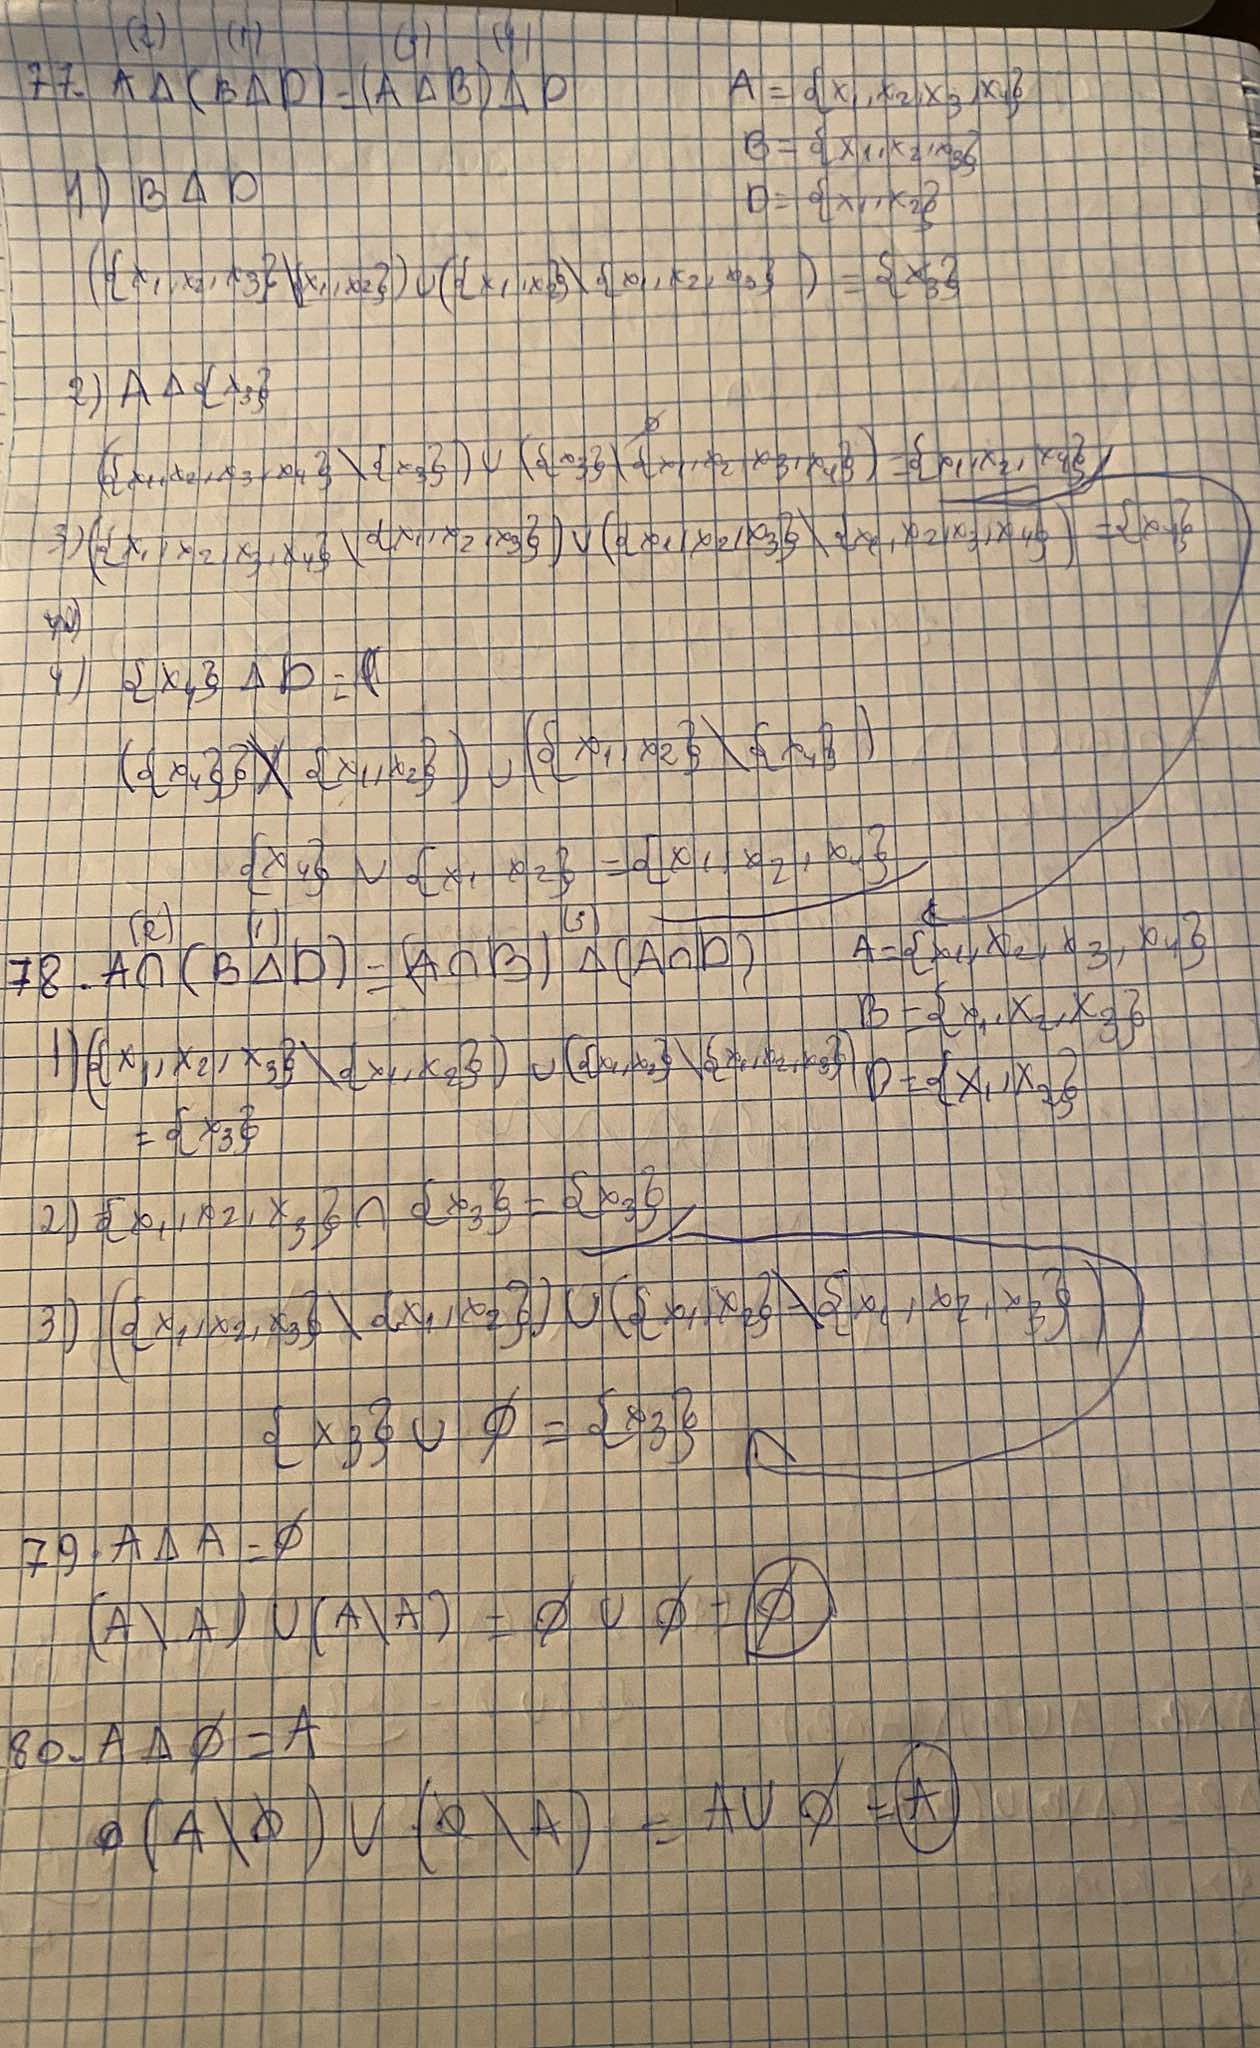 (2) (1) (3) (4)
77. A Δ (B Δ D) = (A Δ B) Δ D
A = {x1, x2, x3, x4}
B = {x1, x2, x3}
D = {x1, x2}
1) B Δ D
({x1, x2, x3} \ {x1, x2}) ∪ ({x1, x2} \ {x1, x2, x3}) = {x3}
2) A Δ {x3}
∅
({x1, x2, x3, x4} \ {x3}) ∪ ({x3} \ {x1, x2, x3, x4}) = {x1, x2, x4}
3) ({x1, x2, x3, x4} \ {x1, x2, x3}) ∪ ({x1, x2, x3} \ {x1, x2, x3, x4}) = {x4}
4) {x4} Δ D =
({x4}) \ {x1, x2}) ∪ ({x1, x2} \ {x4})
{x4} ∪ {x1, x2} = {x1, x2, x4}
(2) (1) (3)
78. A ∩ (B Δ D) = (A ∩ B) Δ (A ∩ D)
A = {x1, x2, x3, x4}
B = {x1, x2, x3}
D = {x1, x2}
1) ({x1, x2, x3} \ {x1, x2}) ∪ ({x1, x2} \ {x1, x2, x3})
= {x3}
2) {x1, x2, x3} ∩ {x3} = {x3}
3) ({x1, x2, x3} \ {x1, x2}) ∪ ({x1, x2} \ {x1, x2, x3})
{x3} ∪ ∅ = {x3}
79. A Δ A = ∅
(A \ A) ∪ (A \ A) = ∅ ∪ ∅ = ∅
80. A Δ ∅ = A
(A \ ∅) ∪ (∅ \ A) = A ∪ ∅ = A